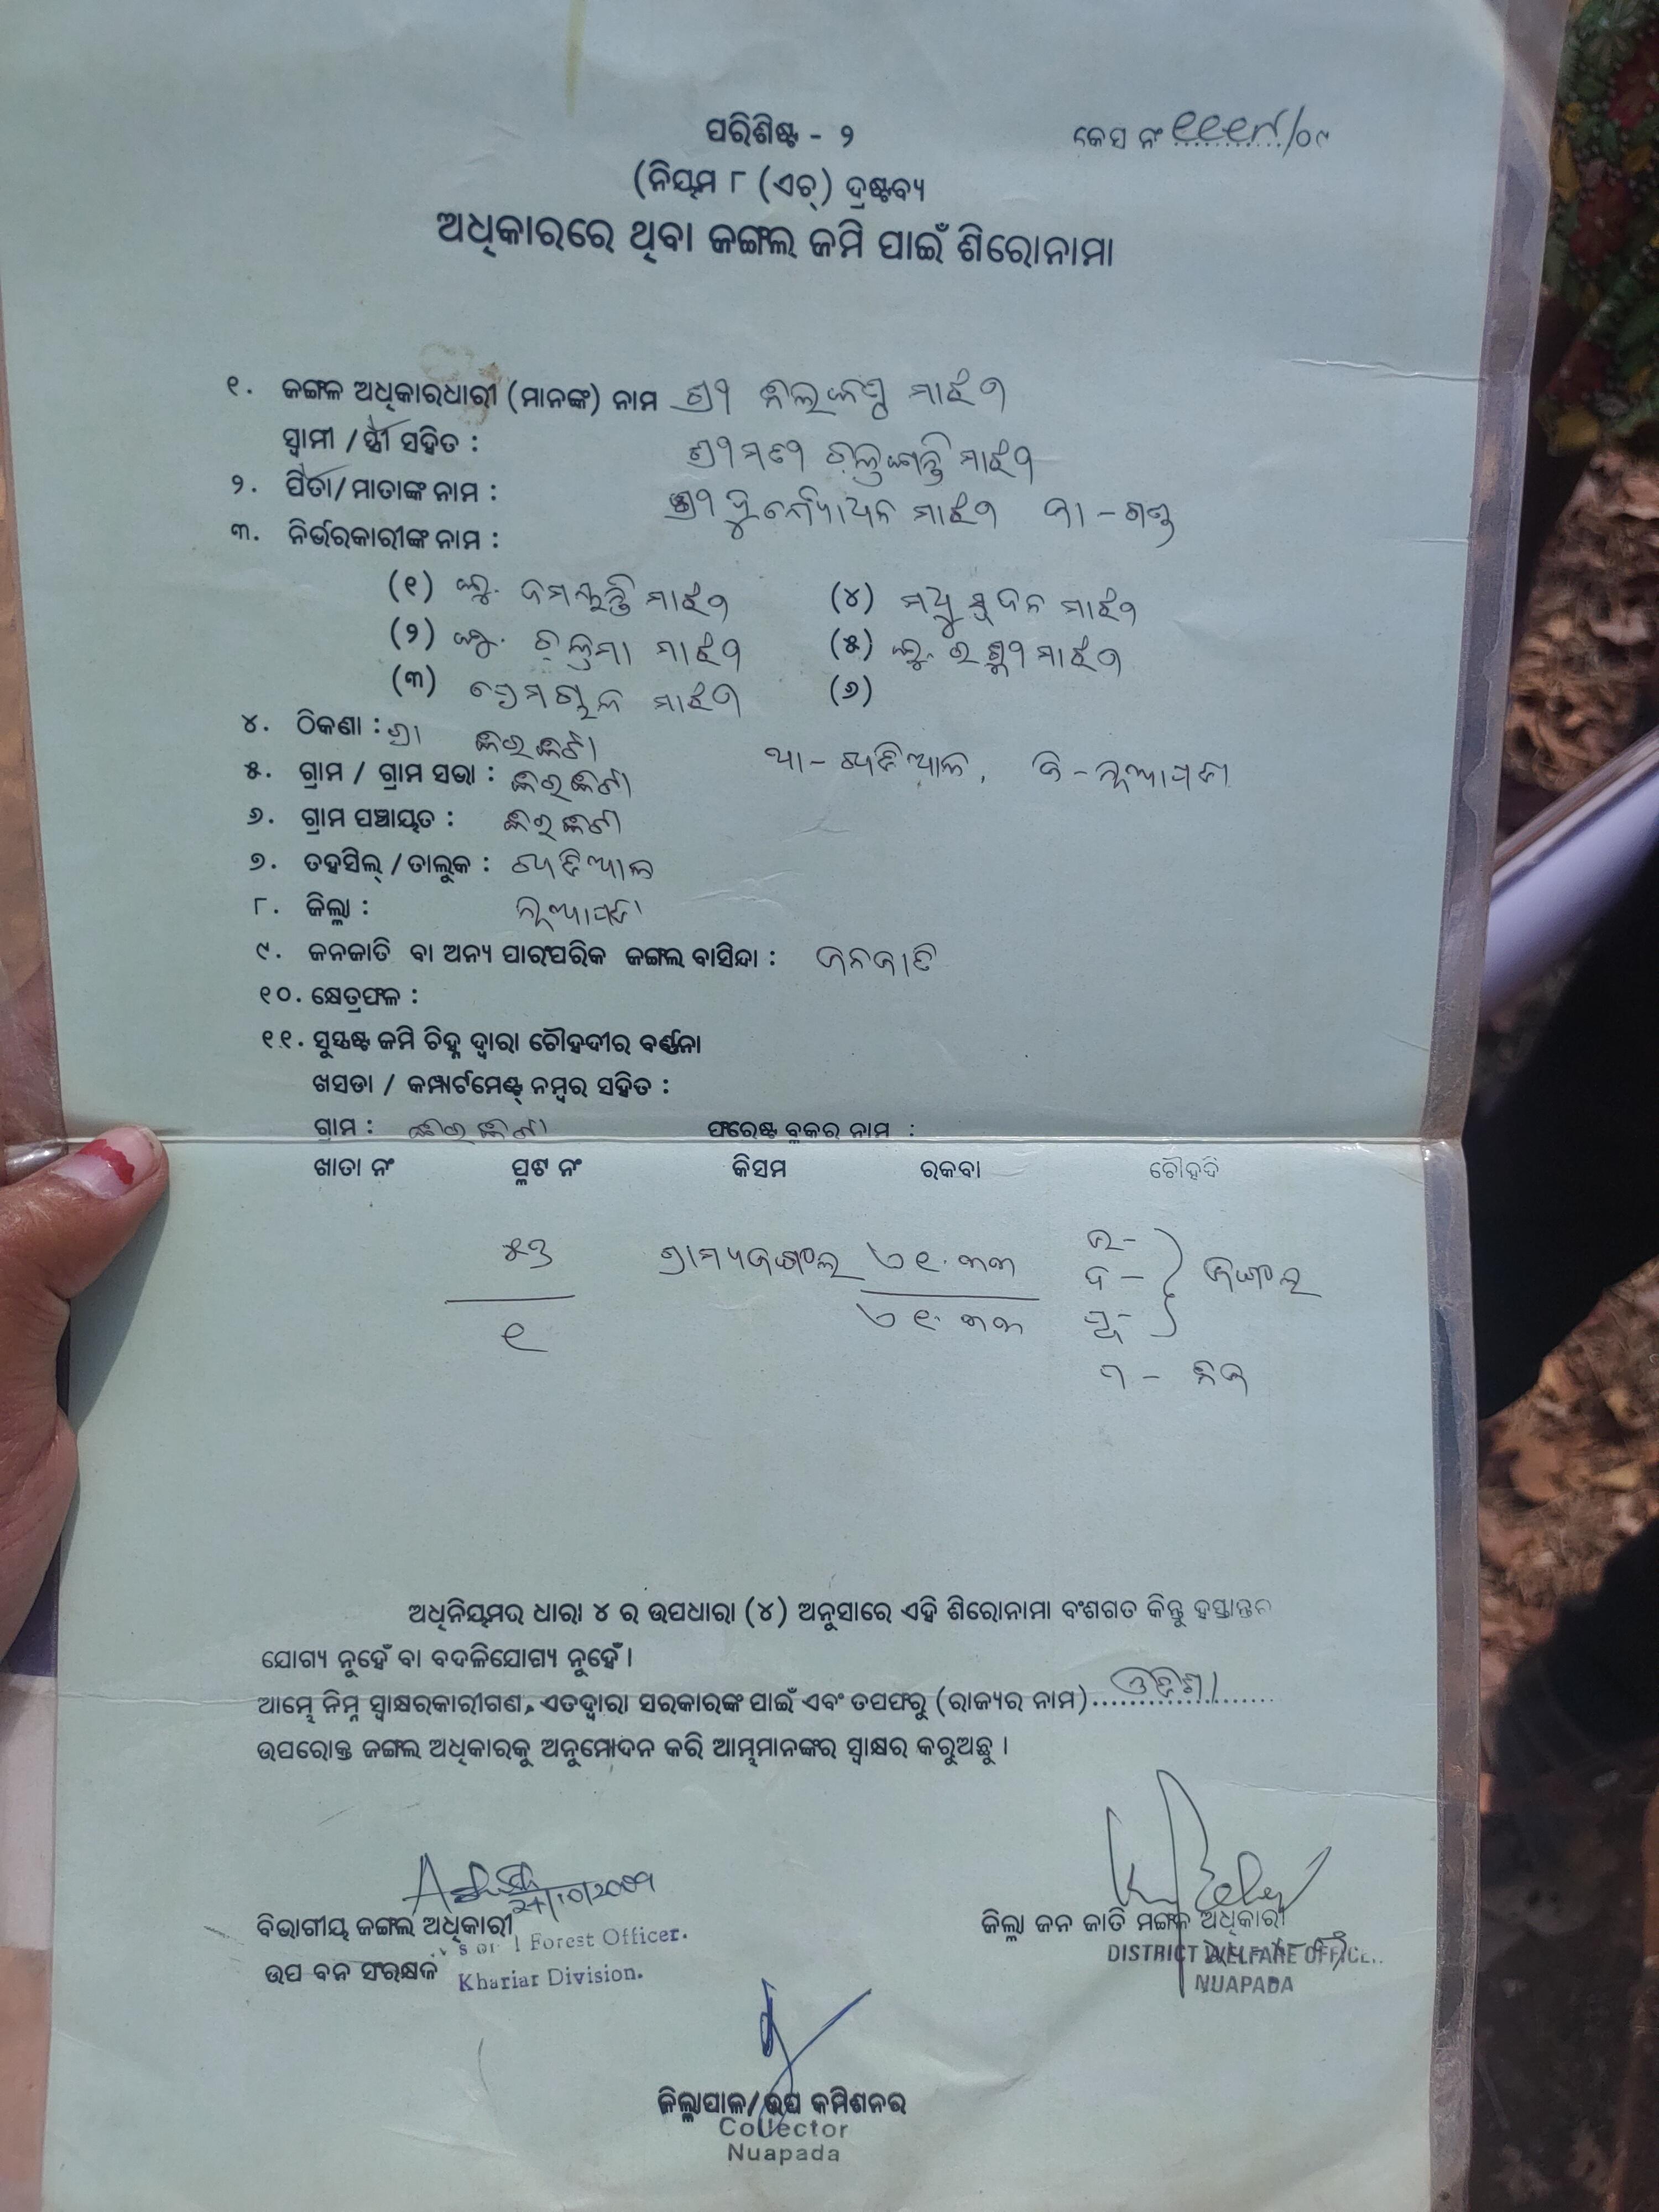 ପରିଶିଷ୍ଟ - ୨
କେସ ନଂ ୧୧୧୩/୦୯
(ନିୟମ ୮ (ଏଚ୍) ଦ୍ରଷ୍ଟବ୍ୟ
ଅଧିକାରରେ ଥିବା ଜଙ୍ଗଲ ଜମି ପାଇଁ ଶିରୋନାମା
୧. ଜଙ୍ଗଳ ଅଧିକାରଧାରୀ (ମାନଙ୍କ) ନାମ ଶ୍ରୀ ନିଳକଣ୍ଠ ମାଝୀ
ସ୍ୱାମୀ / ସ୍ତ୍ରୀ ସହିତ : ଶ୍ରୀମତୀ ମାଝୀ
୨. ପିତା/ମାତାଙ୍କ ନାମ : ଶ୍ରୀ ଦୁର୍ଯ୍ୟୋଧନ ମାଝୀ ଜା - ଗଣ୍ଡ
୩. ନିର୍ଭରକାରୀଙ୍କ ନାମ :
(୧) କୁ. ଦମୟନ୍ତି ମାଝୀ (୪) ମଧୁସୁଦନ ମାଝୀ
(୨) କୁ. ଚନ୍ଦ୍ରମା ମାଝୀ (୫) କୁ. ମାଝୀ
(୩) ମାଝୀ (୬)
୪. ଠିକଣା : ଗ୍ରା କଇକଟା ଥା - ଖଡିଆଳ, ଜି - ନୂଆପଡା
୫. ଗ୍ରାମ / ଗ୍ରାମ ସଭା : କଇକଟା
୬. ଗ୍ରାମ ପଞ୍ଚାୟତ : କଇକଟା
୭. ତହସିଲ୍ / ତାଲୁକ : ଖଡିଆଳ
୮. ଜିଲ୍ଲା : ନୂଆପଡା
୯. ଜନଜାତି ବା ଅନ୍ୟ ପାରଂପରିକ ଜଙ୍ଗଲ ବାସିନ୍ଦା : ଜନଜାତି
୧୦. କ୍ଷେତ୍ରଫଳ :
୧୧. ସୁସ୍ପଷ୍ଟ ଜମି ଚିହ୍ନ ଦ୍ୱାରା ଚୌହଦୀର ବର୍ଣ୍ଣନା
ଖସଡା / କମ୍ପାର୍ଟମେଣ୍ଟ୍ ନମ୍ବର ସହିତ :
ଗ୍ରାମ : କଇକଟା ଫରେଷ୍ଟ ବ୍ଲକର ନାମ :
ଖାତା ନଂ ପ୍ଲଟ ନଂ କିସମ ରକବା ଚୌହଦି
୫୬ ଗ୍ରାମ୍ୟଜଙ୍ଗଲ ୧.୩୩ ଉ- ଦ- ପୂ- } ଜଙ୍ଗଲ
୧ ୧.୩୩
ପ - ନିଜ
ଅଧିନିୟମର ଧାରା ୪ ର ଉପଧାରା (୪) ଅନୁସାରେ ଏହି ଶିରୋନାମା ବଂଶଗତ କିନ୍ତୁ ହସ୍ତାନ୍ତର
ଯୋଗ୍ୟ ନୁହେଁ ବା ବଦଳିଯୋଗ୍ୟ ନୁହେଁ ।
ଆମ୍ଭେ ନିମ୍ନ ସ୍ୱାକ୍ଷରକାରୀଗଣ, ଏତଦ୍ୱାରା ସରକାରଙ୍କ ପାଇଁ ଏବଂ ତପଫରୁ (ରାଜ୍ୟର ନାମ) ଓଡ଼ିଶା
ଉପରୋକ୍ତ ଜଙ୍ଗଲ ଅଧିକାରକୁ ଅନୁମୋଦନ କରି ଆମ୍ଭମାନଙ୍କର ସ୍ୱାକ୍ଷର କରୁଅଛୁ ।
24/10/2009
ବିଭାଗୀୟ ଜଙ୍ଗଲ ଅଧିକାରୀ ଜିଲ୍ଲା ଜନ ଜାତି ମଙ୍ଗଳ ଅଧିକାରୀ
Forest Officer. DISTRICT WELFARE OFFICE
ଉପ ବନ ସଂରକ୍ଷକ Khariar Division. NUAPADA
ଜିଲ୍ଲାପାଳ/ଉପ କମିଶନର
Collector
Nuapada